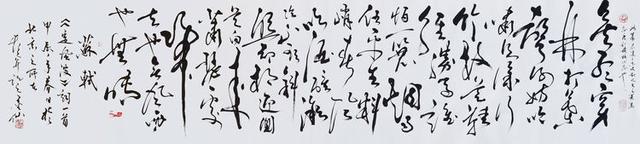 莫听穿
林打叶
声何妨吟
啸且徐行
竹杖芒鞋
轻胜马谁
怕一蓑烟雨
任平生料
峭春风
吹酒醒微
冷山头斜
照却相迎回
首向来
萧瑟处
归
去也无风雨
也无晴
苏轼
定风波词一首
甲辰年春日於
北京